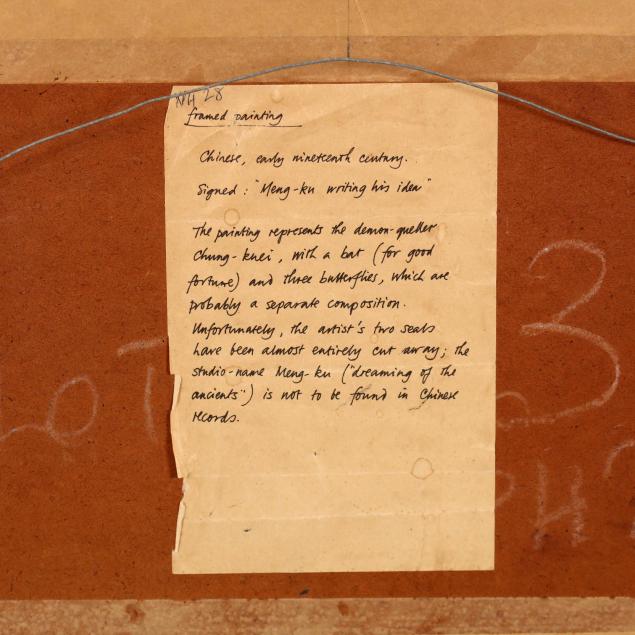 NH 28
framed painting
Chinese, early nineteenth century.
Signed: "Meng-ku writing his idea"
The painting represents the demon-queller
Chung-kuei, with a bat (for good
fortune) and three butterflies, which are
probably a separate composition.
Unfortunately, the artist's two seals
have been almost entirely cut away; the
studio-name Meng-ku ("dreaming of the
ancients") is not to be found in Chinese
records.
LOT
3